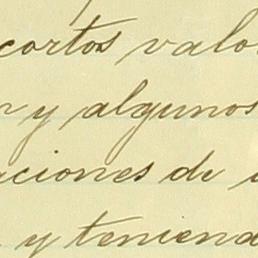 cortos valo
y algunos
aciones de
y teniend